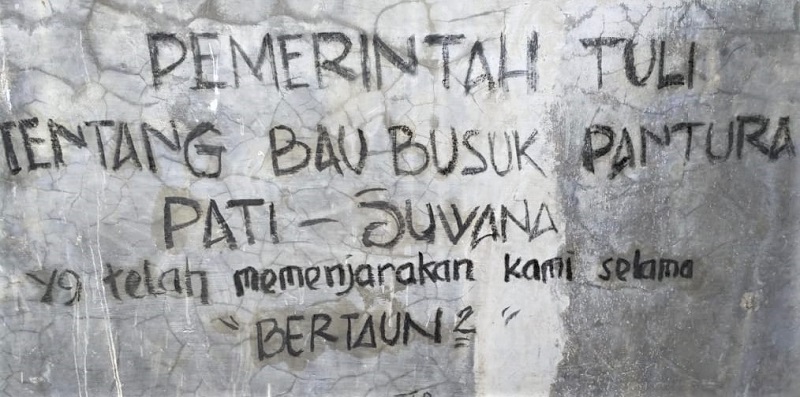 PEMERINTAH TULI
TENTANG BAU BUSUK PANTURA
PATI - JUWANA
yg telah memenjarakan kami selama
"BERTAUN2"